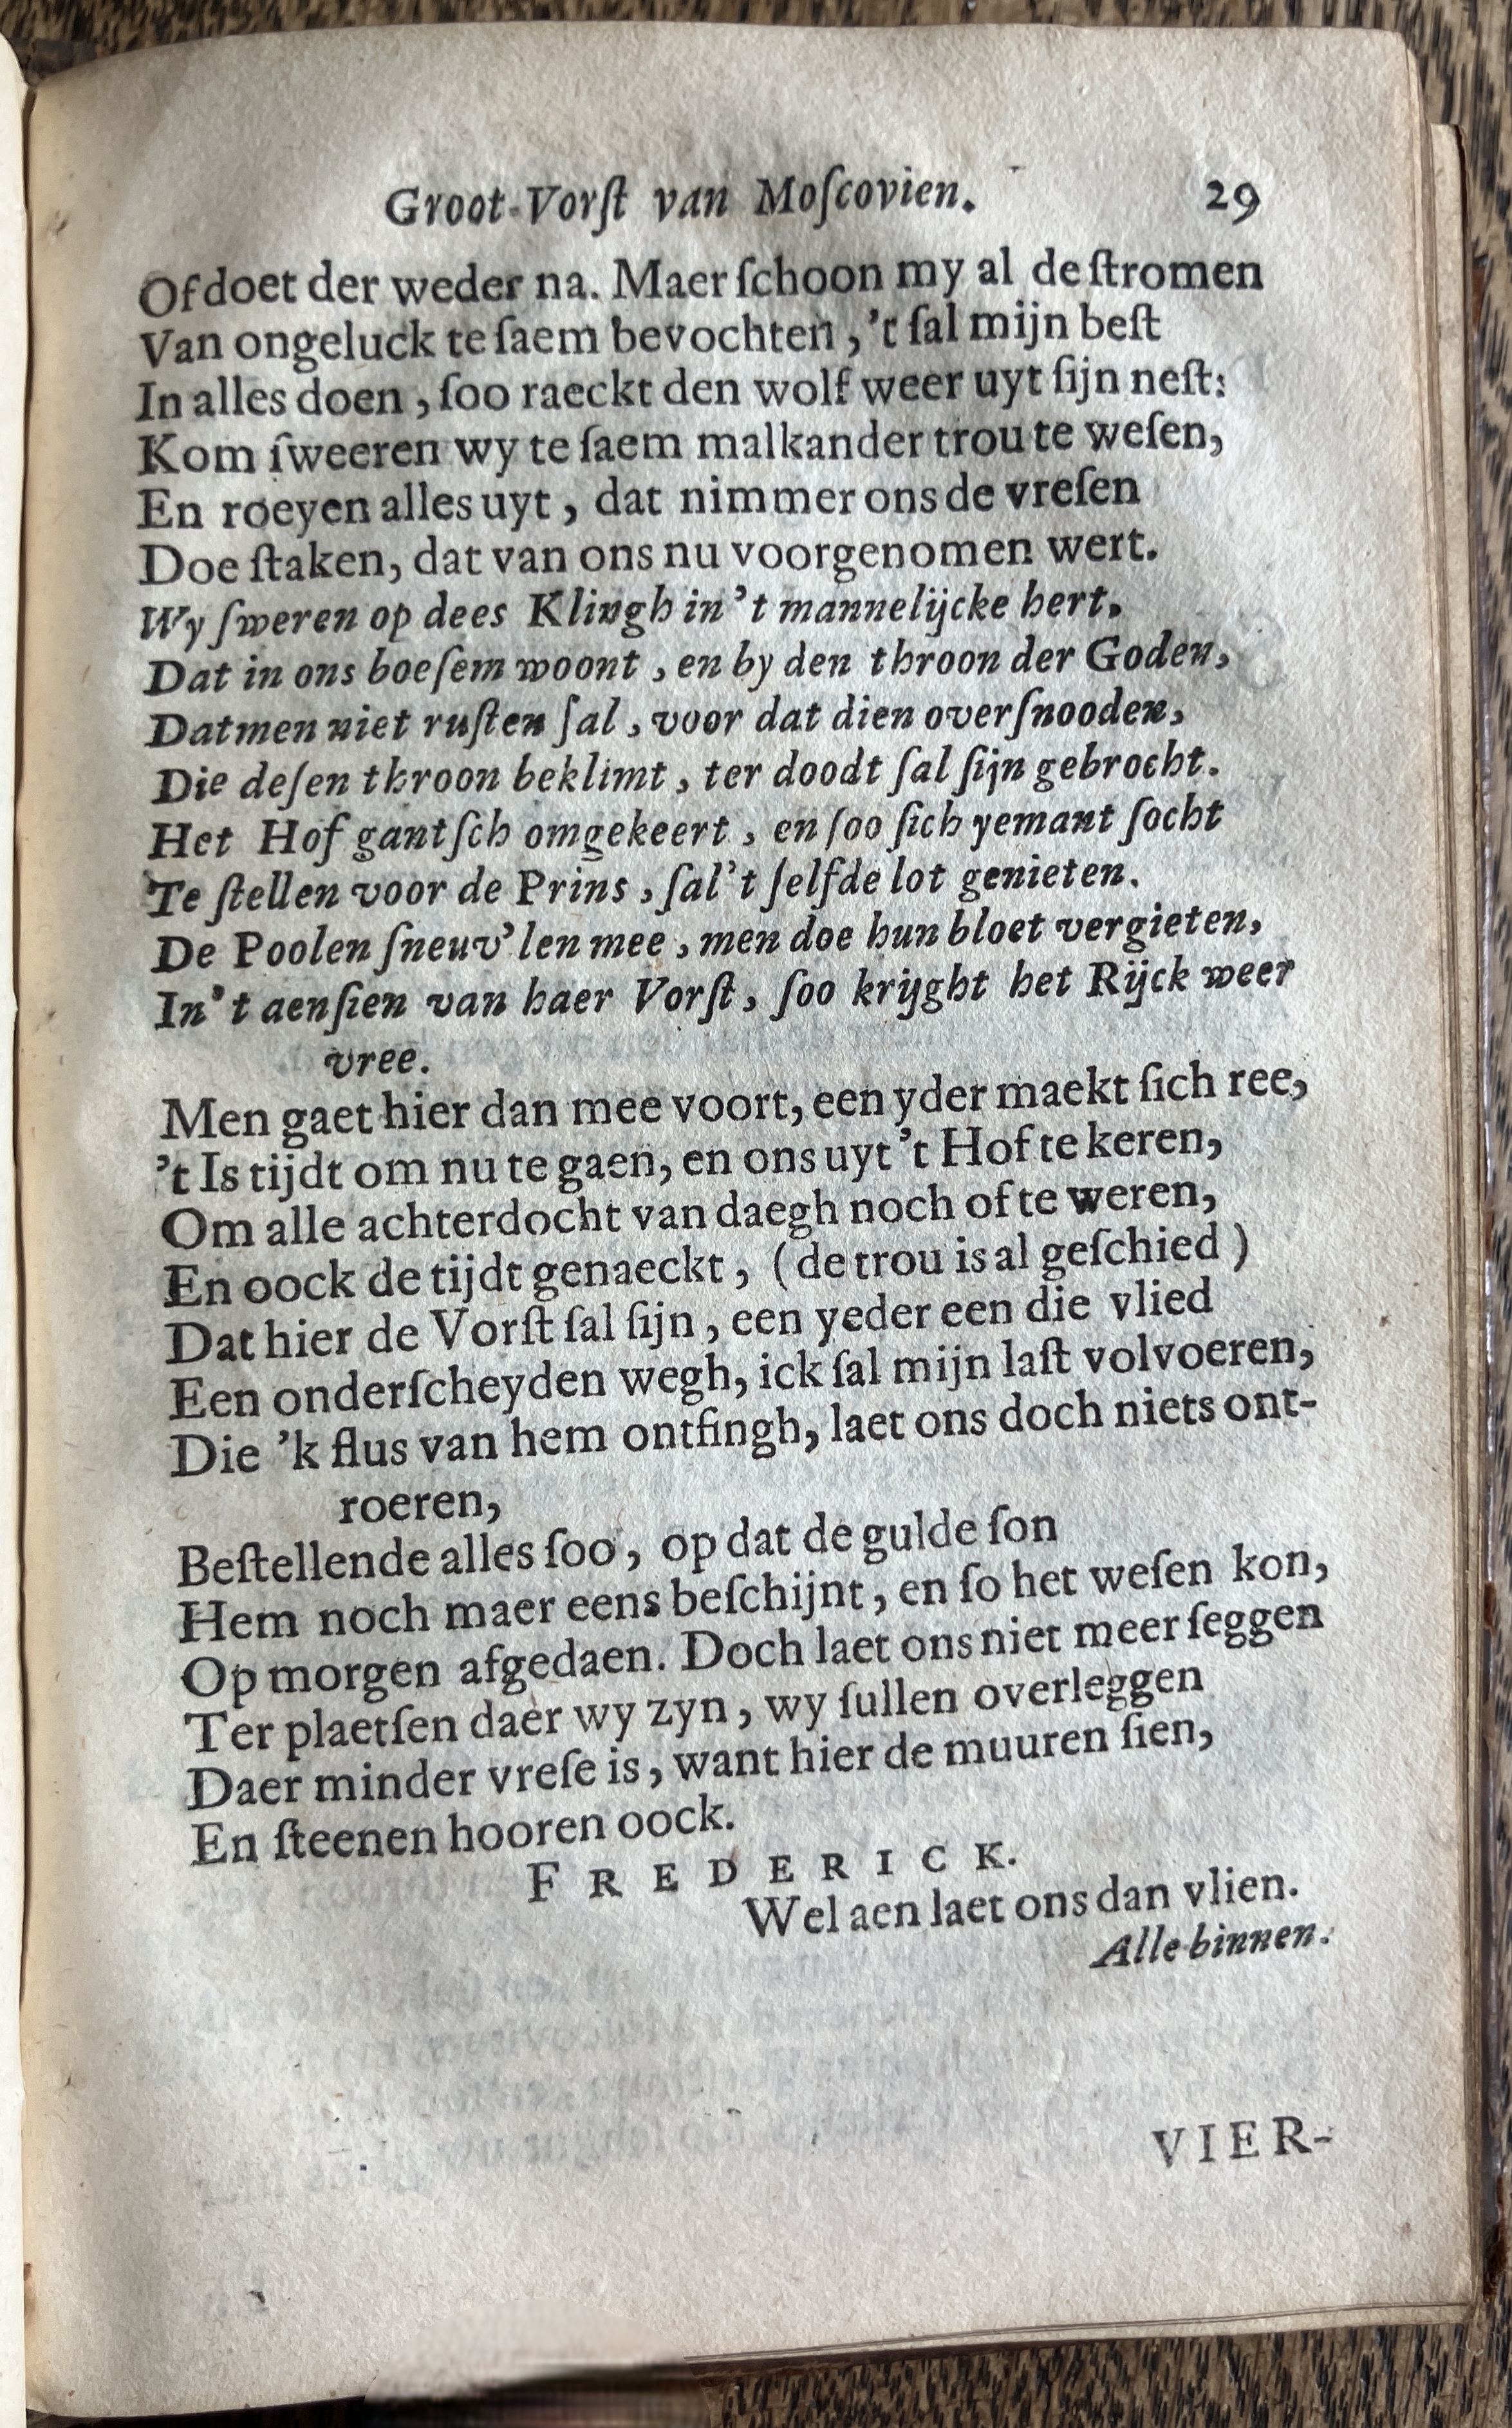 Groot-Vorſt van Moſcovien. 29
Of doet der weder na. Maer ſchoon my al de ſtromen
Van ongeluck te ſaem bevochten, 't ſal mijn beſt
In alles doen, ſoo raeckt den wolf weer uyt ſijn neſt:
Kom ſweeren wy te ſaem malkander trou te weſen,
En roeyen alles uyt, dat nimmer ons de vreſen
Doe ſtaken, dat van ons nu voorgenomen wert.
Wy ſweren op dees Klingh in't mannelijcke hert.
Dat in ons boeſem woont, en by den throon der Goden,
Datmen niet ruſten ſal, voor dat dien overſnooden,
Die deſen throon beklimt, ter doodt ſal ſijn gebrocht.
Het Hof gantſch omgekeert, en ſoo ſich yemant ſocht
Te ſtellen voor de Prins, ſal't ſelfde lot genieten.
De Poolen ſneuv'len mee, men doe hun bloet vergieten,
In't aenſien van haer Vorſt, ſoo krijght het Rijck weer
vree.
Men gaet hier dan mee voort, een yder maekt ſich ree,
't Is tijdt om nu te gaen, en ons uyt 't Hof te keren,
Om alle achterdocht van daegh noch of te weren,
En oock de tijdt genaeckt, (de trou is al geſchied)
Dat hier de Vorſt ſal ſijn, een yeder een die vlied
Een onderſcheyden wegh, ick ſal mijn laſt volvoeren,
Die 'k flus van hem ontfingh, laet ons doch niets ont-
roeren,
Beſtellende alles ſoo, op dat de gulde ſon
Hem noch maer eens beſchijnt, en ſo het weſen kon,
Op morgen afgedaen. Doch laet ons niet meer ſeggen
Ter plaetſen daer wy zyn, wy ſullen overleggen
Daer minder vreſe is, want hier de muuren ſien,
En ſteenen hooren oock.
FREDERICK.
Wel aen laet ons dan vlien.
Alle binnen.
VIER-